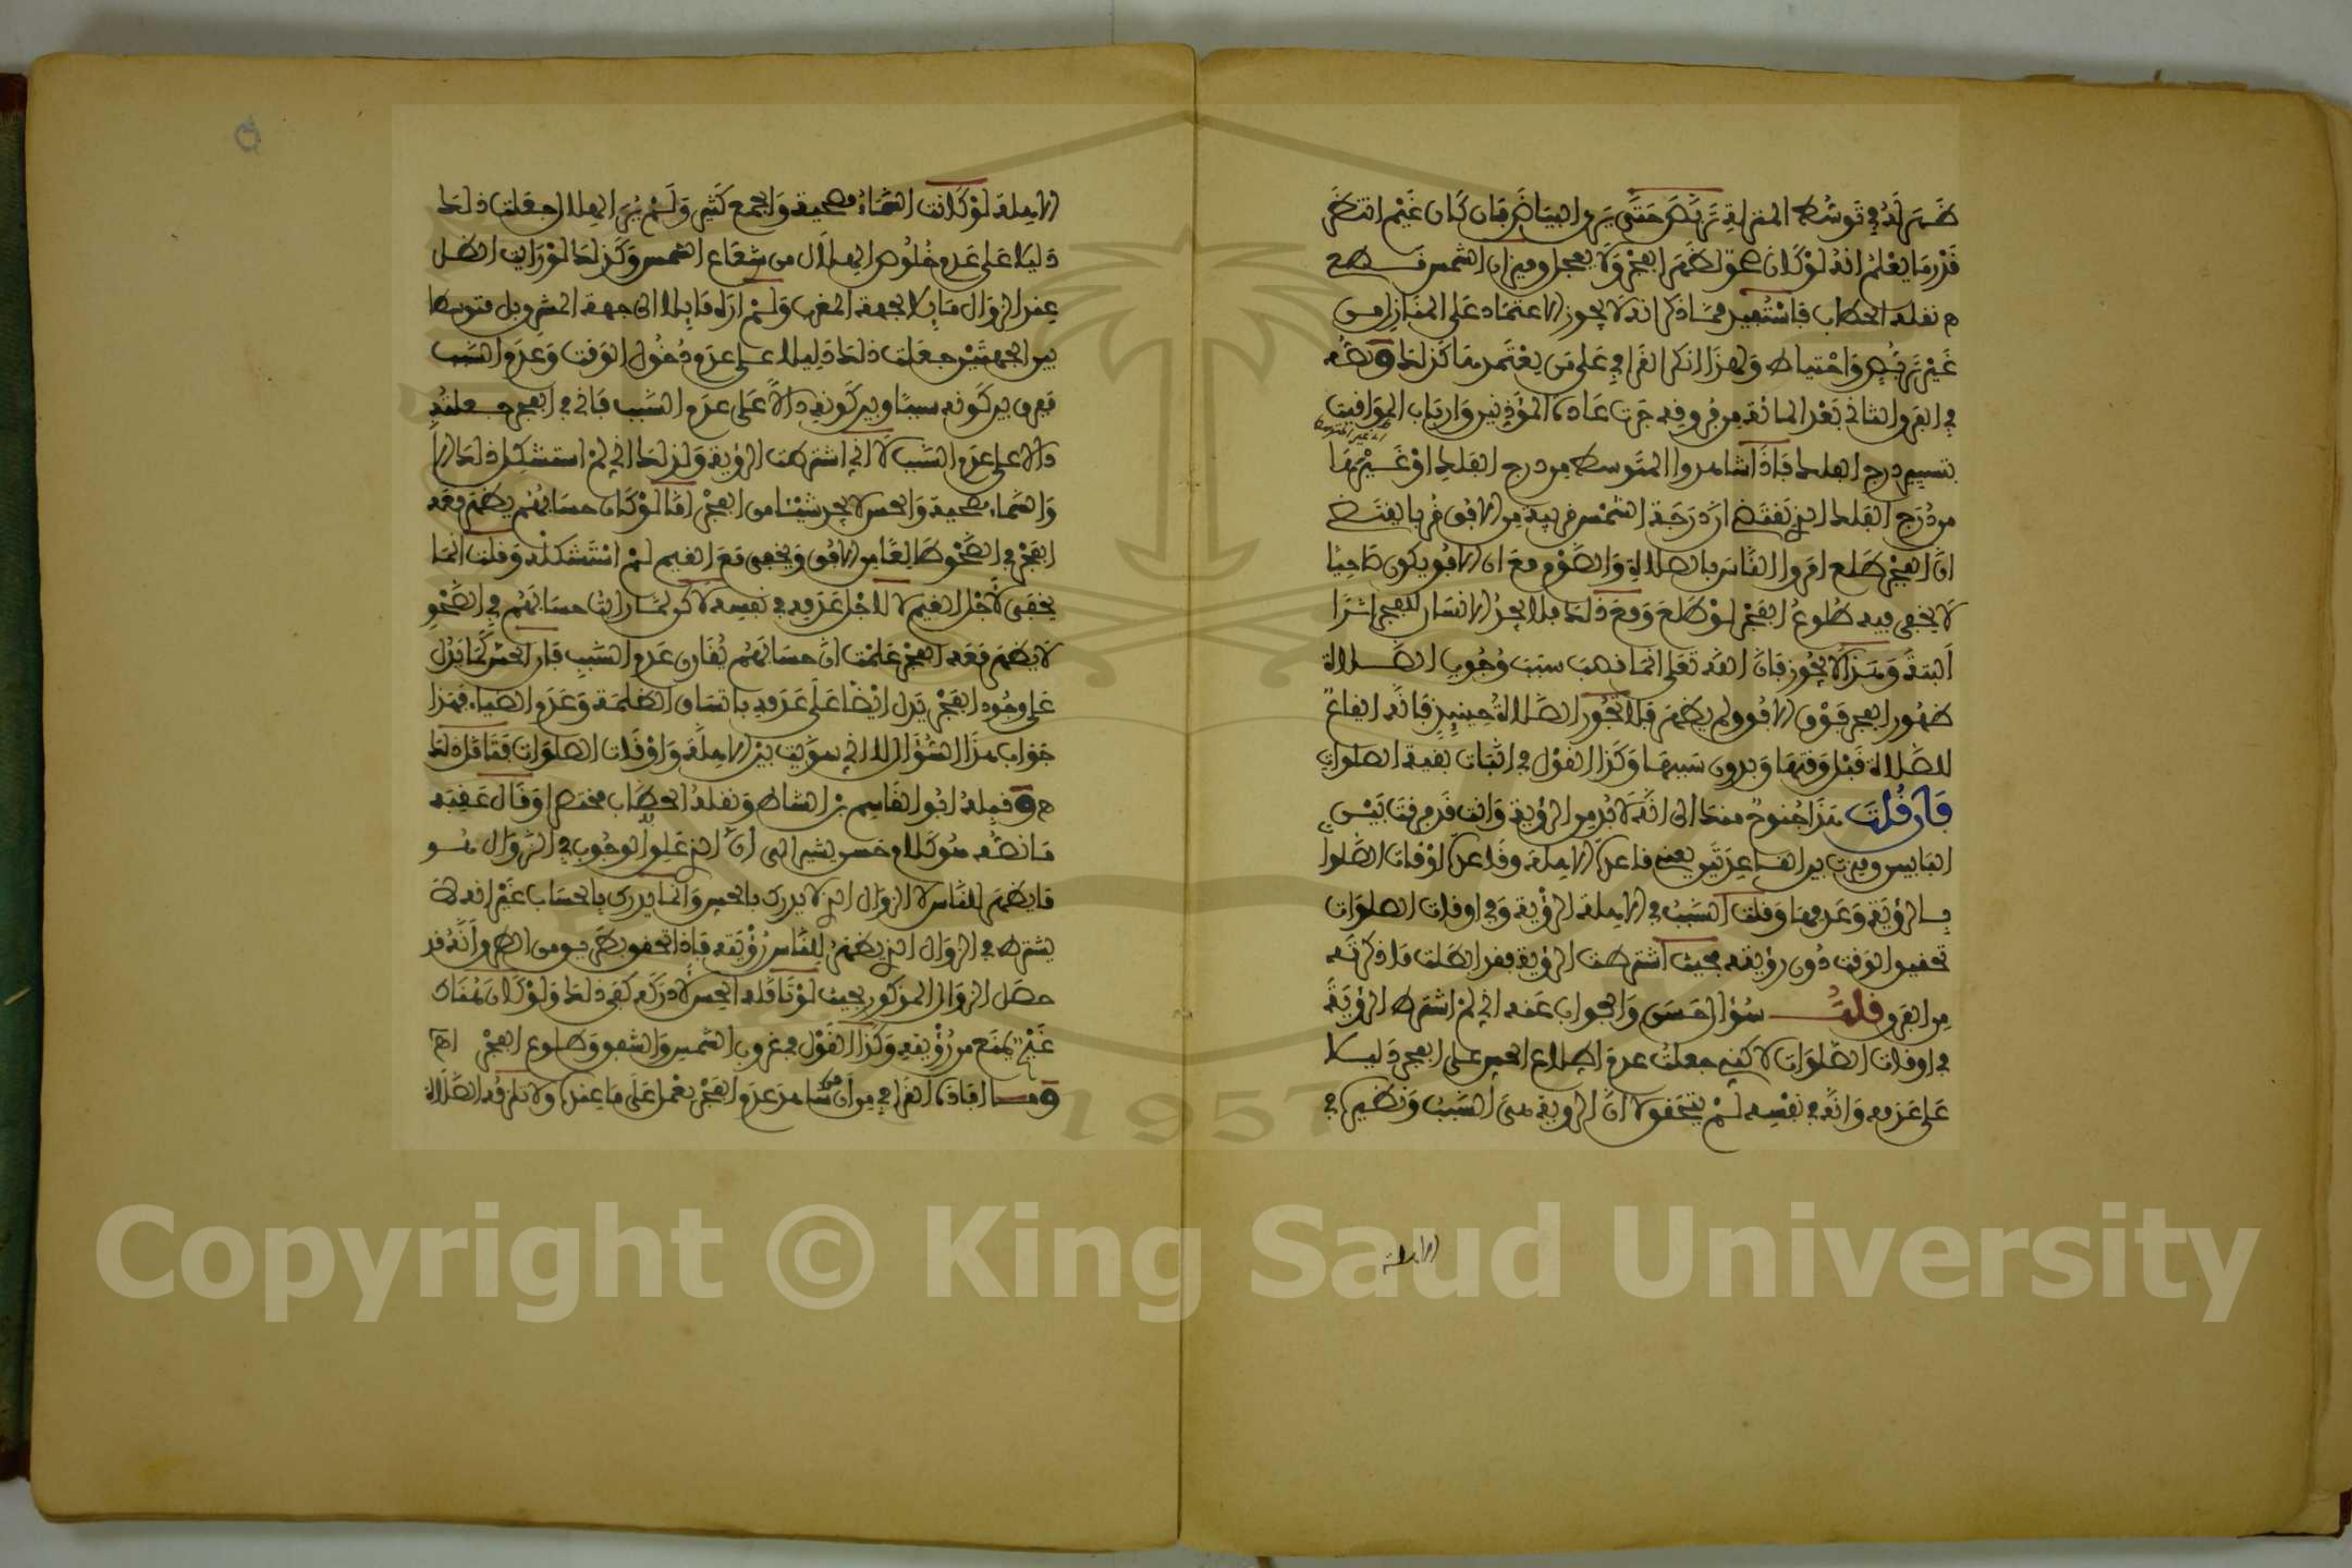 ظهر له في توسط المنزلة تربص حتى يرى البياض فإن كان غيم انتظر
قدر ما يعلم انه لو كان صحو لظهر الفجر ولا يعجل وميزان الشمس
نقله الحطاب فاستفيد مما ذكر انه لا يجوز الاعتماد على المنازل من
غير تربص واحتياط ولهذا انكر القرافي على من يعتمدها كذلك ونصه
في الفرق الثاني بعد المائة من فروقه جرت عادة المؤذنين وارباب المواقيت
بتسيير درج الفلك فاذا شاهدوا المتوسط من درج الفلك او غيرها
من درج الفلك الذي يقتضي ان درجة الشمس قريبة من الافق قربا يقتضي
ان الفجر طلع امروا الناس بالصلاة والصوم مع ان الافق يكون صاحيا
لا يخفى فيه طلوع الفجر لو طلع ومع ذلك فلا يجد الانسان للفجر اثرا
البتة وهذا لا يجوز فان الله تعالى انما نصب سبب وجوب الصلاة
ظهور الفجر فوق الافق ولم يظهر فلا تجوز الصلاة حينئذ فانه ايقاع
للصلاة قبل وقتها وبدون سببها وكذا القول في اثبات بقية الصلوات
فان قلت هذا جنوح منك الى انه لا بد من الرؤية وانت قد فرقت بين
البابين وميزت بين القاعدتين يعني قاعدة الاهلة وقاعدة اوقات الصلوات
بالرؤية وعدمها وقلت السبب في الاهلة الرؤية وفي اوقات الصلوات
تحقيق الوقت دون رؤيته فحيث اشترطت الرؤية فقد ابطلت ما ذكرته
من الفرق قلت سؤال حسن والجواب عنه اني لم اشترط الرؤية
في اوقات الصلوات لكني جعلت عدم اطلاع الحس على الفجر دليلا
على عدمه وانه في نفسه لم يتحقق لا ان الرؤية هي السبب ونظيره في
الاهلة
الاهلة لو كانت السماء مصحية والجمع كثير ولم ير الهلال جعلت ذلك
دليلا على عدم خلوص الهلال من شعاع الشمس وكذلك لو رايت الظل
عند الزوال مايلا لجهة المغرب ولم اره مايلا الى جهة المشرق بل متوسطا
بين الجهتين جعلت ذلك دليلا على عدم دخول الوقت وعدم السبب
ففرق بين كونه سببا وبين كونه دالا على عدم السبب فاني في الفجر جعلته
دالا على عدم السبب لا اني اشترطت الرؤية ولذلك اني لم استشكل ذلك الا
والسماء مصحية والحس لا يجد شيئا من الفجر اما لو كان حسابهم يظهر معه
الفجر في الصحو طالعا من الافق ويخفى مع الغيم لم استشكله وقلت انما
يخفى لاجل الغيم لا لاجل عدمه في نفسه لاكن لما رايت حسابهم في الصحو
لا يظهر معه الفجر علمت ان حسابهم يقارن عدم السبب فان الحس كما يدل
على وجود الفجر يدل ايضا على عدمه باتساق الظلمة وعدم الضياء فهذا
جواب هذا السؤال لا اني سويت بين الاهلة واوقات الصلوات فتامل ذلك
وقبله ابو القاسم بن الشاط ونقله الحطاب مختصرا وقال عقبه
ما نصه هو كلام حسن يشير الى ان الذي علق الوجوب في الزوال هو
ما يظهر للناس لا الزوال الذي لا يدرى بالحس وانما يدرى بالحساب غير انه لا
يشترط في الزوال الذي يظهر للناس رؤيته فاذا تحقق بطريق من الطرق انه قد
حصل الزوال المذكور بحيث لو تامله الحس لادركه كفى ذلك ولو كان هناك
غيم يمنع من رؤيته وكذا القول في غروب الشمس والشفق وطلوع الفجر اهـ
وما افاده القرافي من ان من شاهد عدم الفجر يعمل على ما عنده ولا تلزمه الصلاة